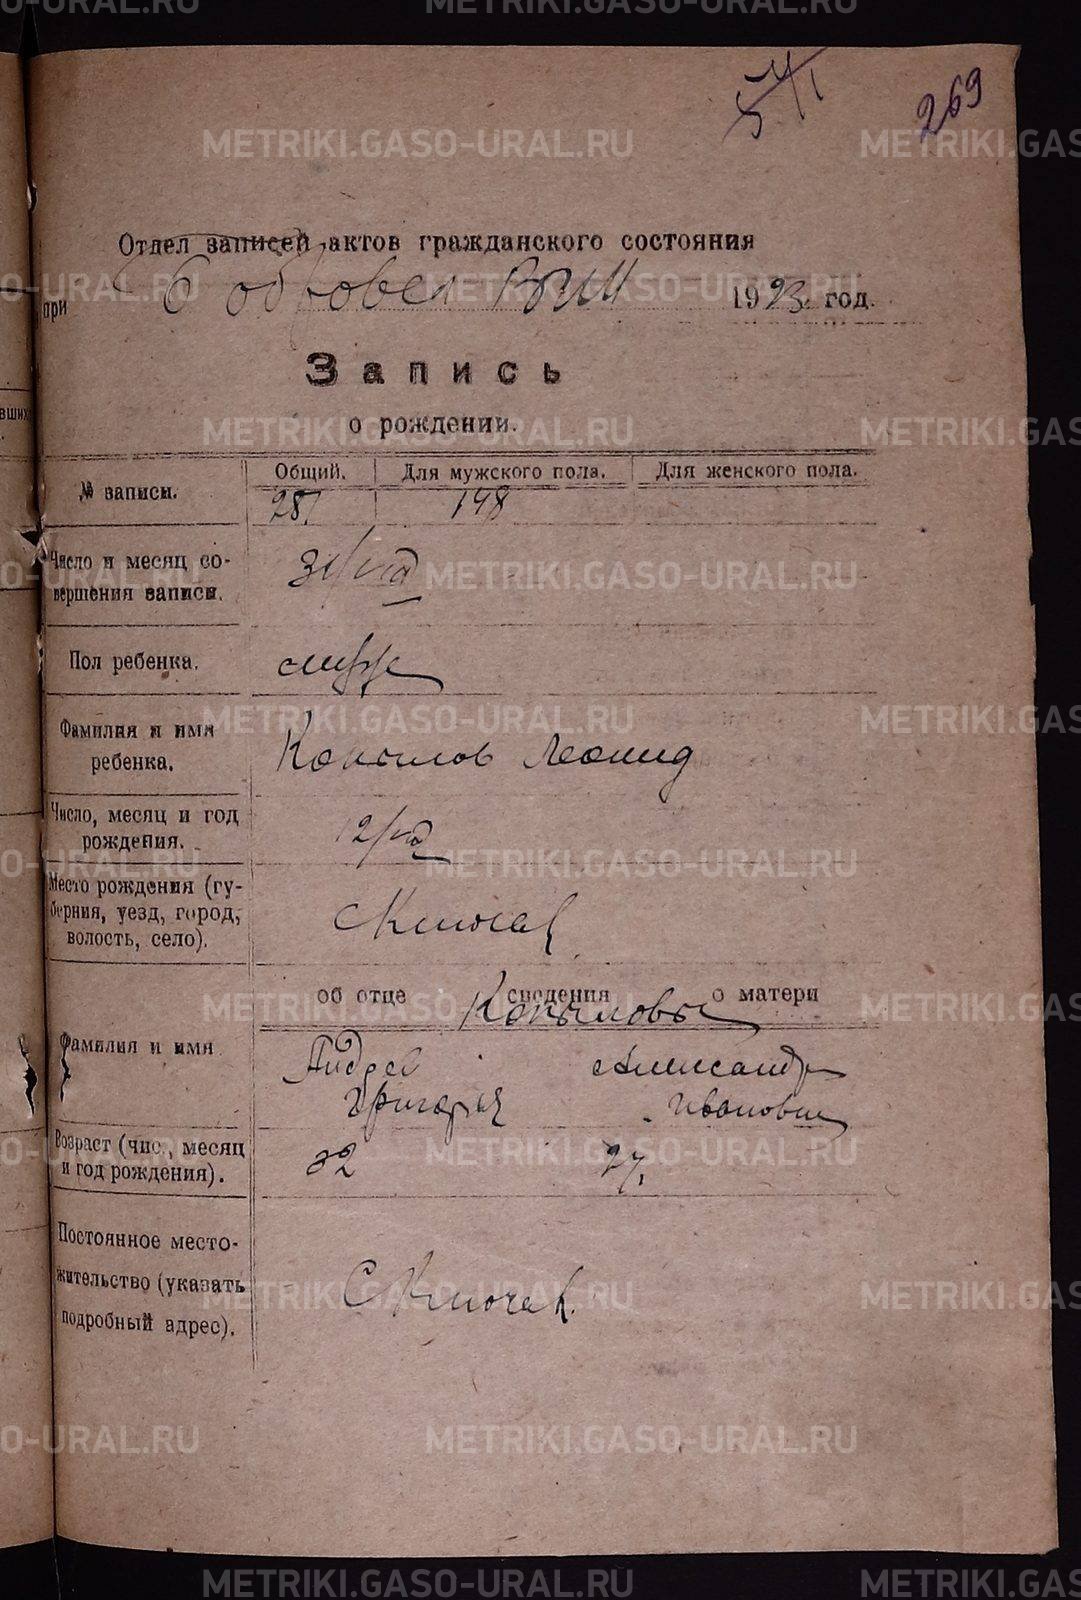 269
Отдел записей актов гражданского состояния
при Бобровск ВИК 1923 год.
Запись
о рождении.
№ записи. Общий. Для мужского пола. Для женского пола.
281 148
Число и месяц со-
вершения записи. 31/VIII
Пол ребенка. муж
Фамилия и имя
ребенка. Копылов Леонид
Число, месяц и год
рождения. 12/VIII
Место рождения (гу-
берния, уезд, город,
волость, село). с Ключев
об отце сведения о матери
Копыловы
Фамилия и имя Андрей Александра
Григорьев Ивановна
Возраст (чис., месяц
и год рождения). 32 27
Постоянное место-
жительство (указать
подробный адрес). С Ключев
METRIKI.GASO-URAL.RU